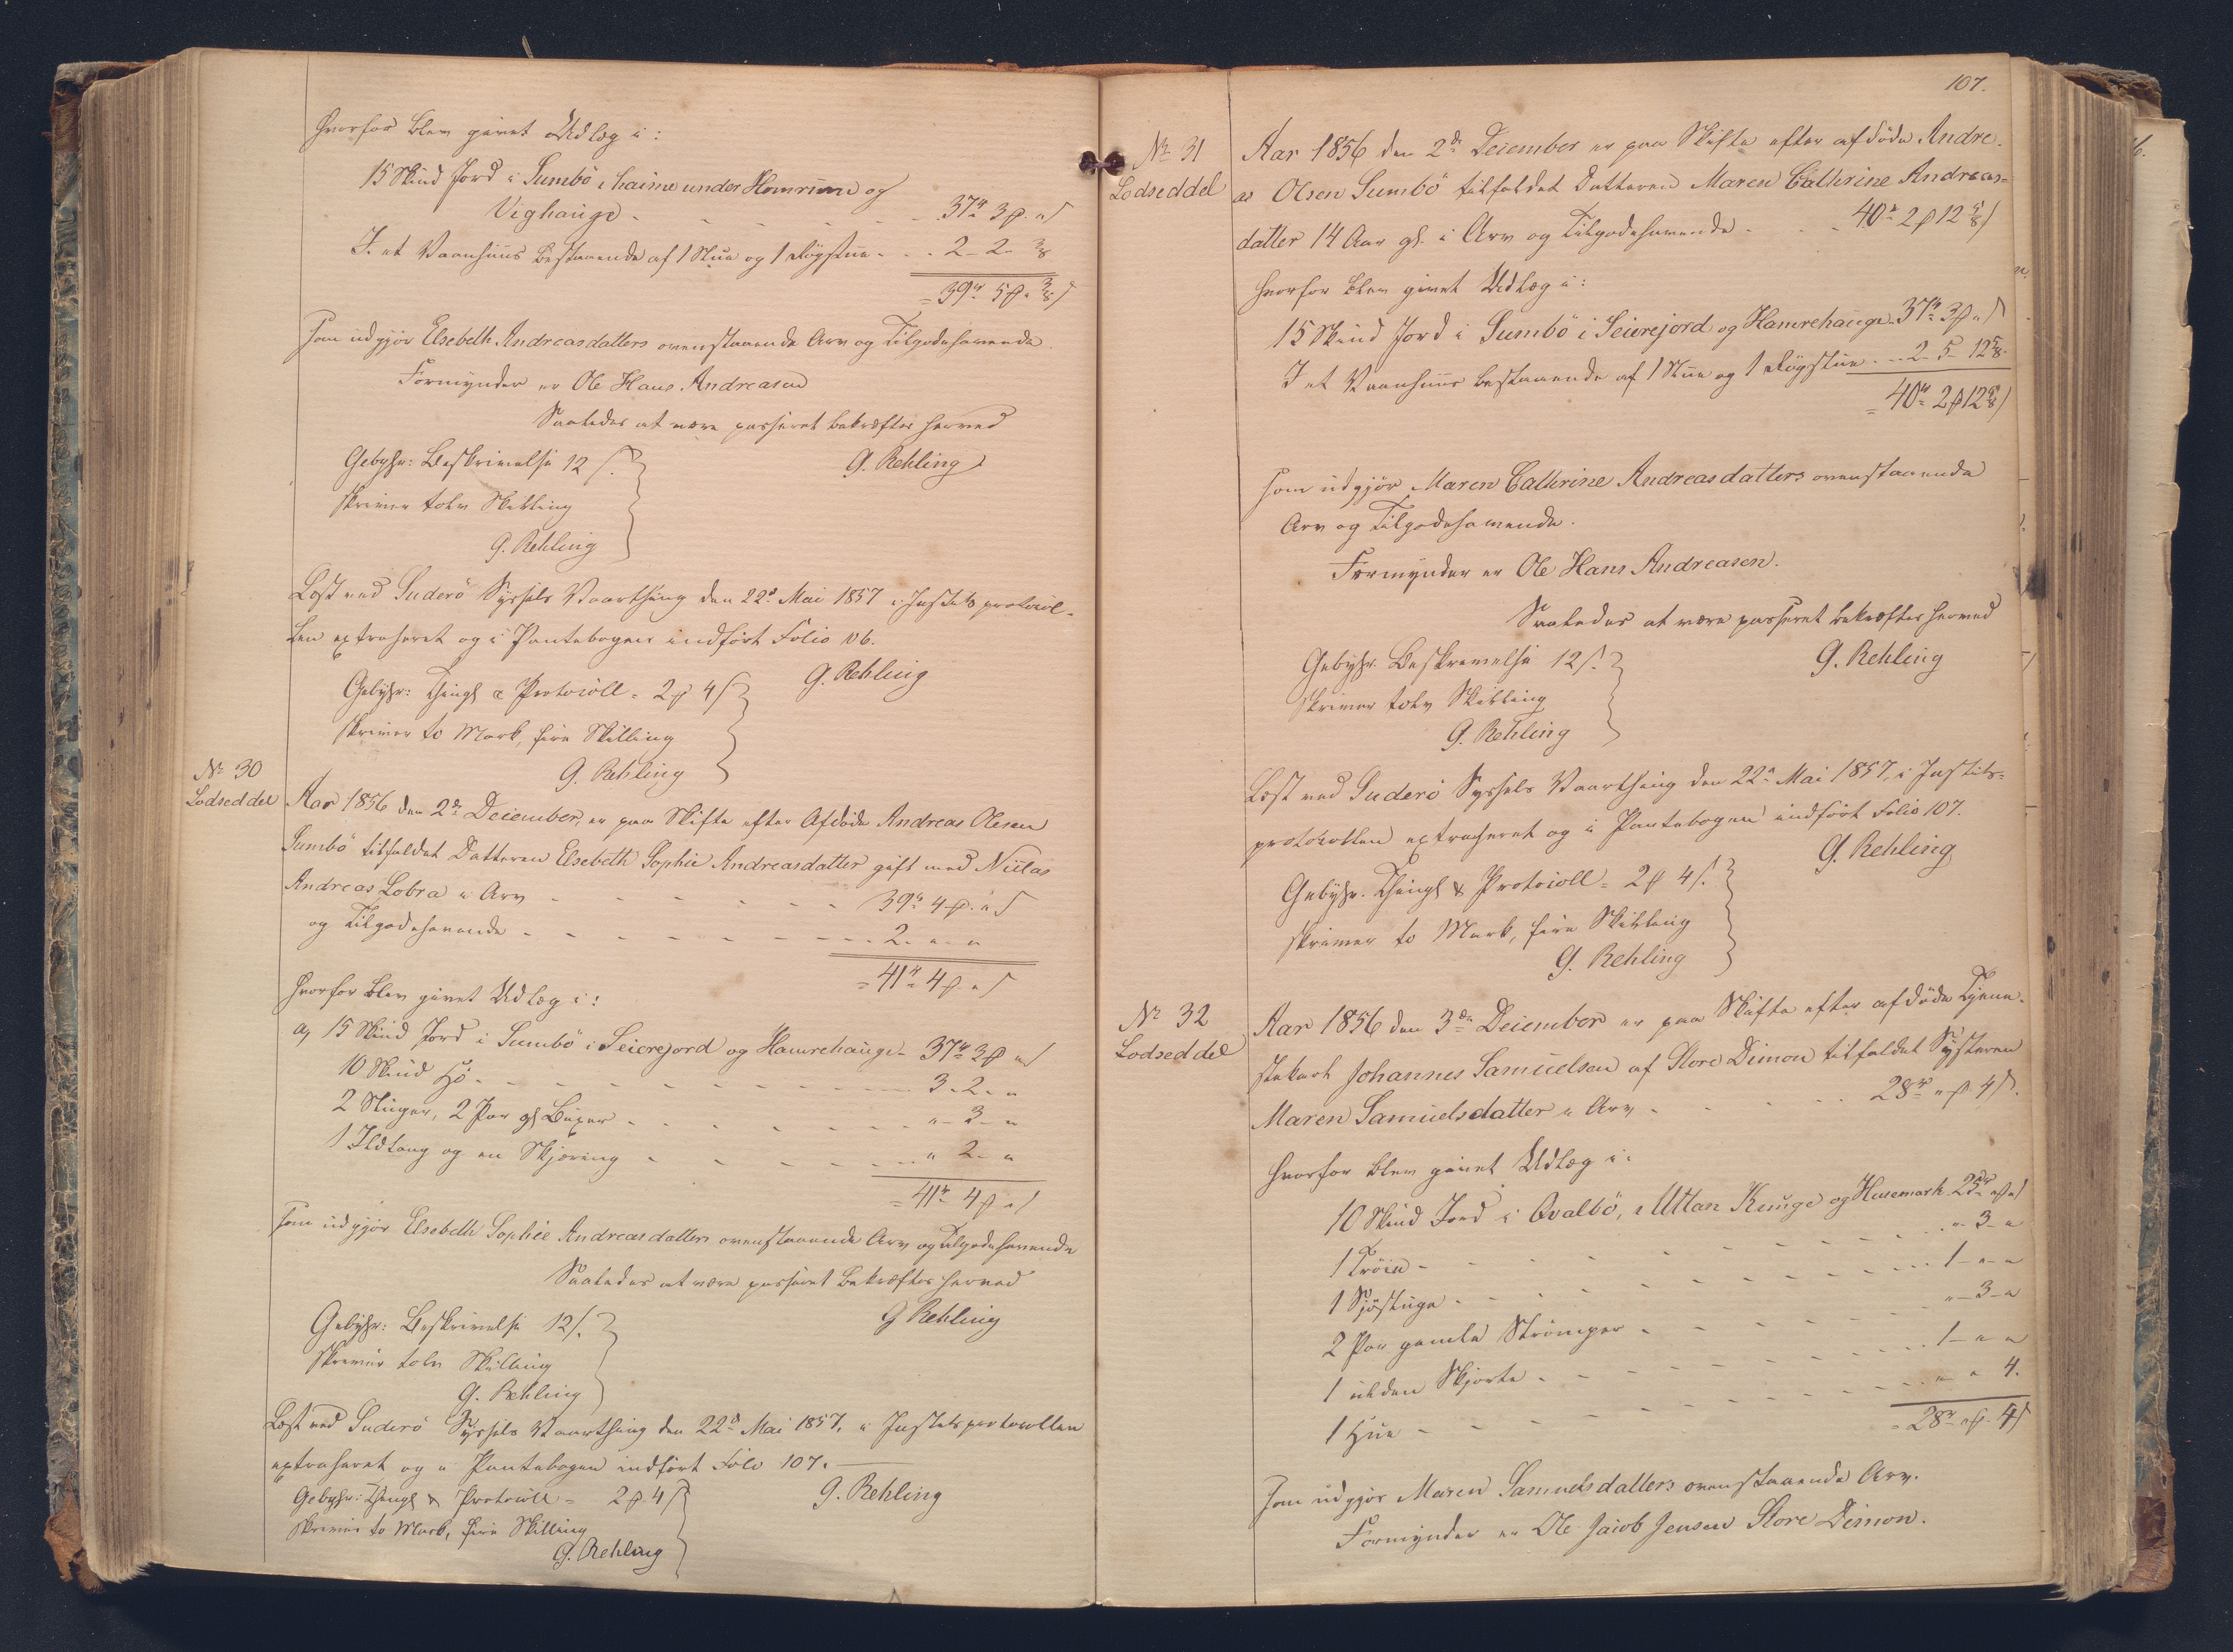 hvorfor blev givet Udlæg i:
15 Skind Jord i Sumbö i haime under Homrum og
Vighauge - - - - - 37rd 3 β " s
I et Vaanhuus bestaaende af 1 Stue og 1 Røgstue - - 2 - 2 - 3/8
= 39rd 5 β " 3/8 s
som udgjør Elsebeth Andreasdatters ovenstaaende Arv og Tilgodehavende
Formynder er Ole Hans Andreasen
Saaledes at være passeret bekræftes herved
G. Rehling
Gebyhr: Beskrivelse 12 s.
skriver tolv Skilling
G. Rehling
Læst ved Suderö Syssels Vaarthing den 22d Mai 1857 i Justitsprotocol-
len extraheret og i Pantebogen indført Folio 106.
G. Rehling
Gebyhr: Thingl & Protocoll = 2 β 4 s
skriver to Mark, fire Skilling
G. Rehling
No 30
Lodseddel
Aar 1856 den 2de December, er paa Skifte efter Afdøde Andreas Olesen
Sumbö tilfaldet Datteren Elsebeth Sophie Andreasdatter gift med Niclas
Andreas Lobra i Arv - - - - - - 39rd 4 β " s
og Tilgodehavende - - - - - - 2 - " - "
= 41rd 4 β " s
hvorfor blev givet Udlæg i:
a, 15 Skind Jord i Sumbö i Seierejord og Hamrehauge - 37rd 3 β " s
10 Skind Hø - - - - - - 3 - 2 - "
2 Stinger, 2 Par gl. Buxer - - - - - - " - 3 - "
1 Ildtang og en Skjæring - - - - - - " 2 - "
= 41rd 4 β " s
som udgjør Elsebeth Sophie Andreasdatters ovenstaaende Arv og Tilgodehavende
Saaledes at være passeret bekræftes herved
G Rehling
Gebyhr: Beskrivelse 12 s.
skriver tolv Skilling
G. Rehling
Læst ved Suderö Syssels Vaarthing den 22d Mai 1857, i Justitsprotocollen
extraheret og i Pantebogen indført Folio 107.
G. Rehling
Gebyhr: Thingl & Protocoll = 2 β 4 s
skriver to Mark, fire Skilling
G. Rehling
107.
No 31
Lodseddel
Aar 1856 den 2de December er paa Skifte efter afdøde Andre-
as Olsen Sumbö tilfaldet Datteren Maren Cathrine Andreas=
datter 14 Aar gl. i Arv og Tilgodehavende - - - 40rd 2 β 12 5/8 s
hvorfor blev givet Udlæg i:
15 Skind Jord i Sumbö i Seierejord og Hamrehauge 37rd 3 β " s
I et Vaanhuus bestaaende af 1 Stue og 1 Røgstue - - 2 - 5 - 12 5/8 -
= 40rd 2 β 12 5/8 s
som udgjør Maren Cathrine Andreasdatters ovenstaaende
Arv og Tilgodehavende.
Formynder er Ole Hans Andreasen.
Saaledes at være passeret bekræftes herved
G. Rehling
Gebyhr. Beskrivelse 12 s.
skriver tolv Skilling
G. Rehling
Læst ved Suderö Syssels Vaarthing den 22d Mai 1857, i Justits=
protocollen extraheret og i Pantebogen indført Folio 107.
G. Rehling
Gebyhr. Thingl & Protocoll = 2 β 4 s.
skriver to Mark, fire Skilling
G. Rehling
No 32
Lodseddel
Aar 1856 den 3de December er paa Skifte efter afdøde Tjene-
stekarl Johannes Samuelsen af Store Dimon tilfaldet Systeren
Maren Samuelsdatter i Arv - - - - 28rd " β 4 s.
hvorfor blev givet Udlæg i:
10 Skind Jord i Qvalbö, i Uttan Kauge og Husemark 25rd " β " s
1 Trøie - - - - - - " - 3 - "
1 Sjøstuge - - - - - - 1 - " - "
2 Par gamle Strömper - - - - - - " - 3 - "
1 ulden Skjorte - - - - - - 1 - " - "
1 Hue - - - - - - " " 4.
= 28rd " β 4 s
som udgjør Maren Samuelsdatters ovenstaaende Arv.
Formynder er Ole Jacob Jensen Store Dimon.